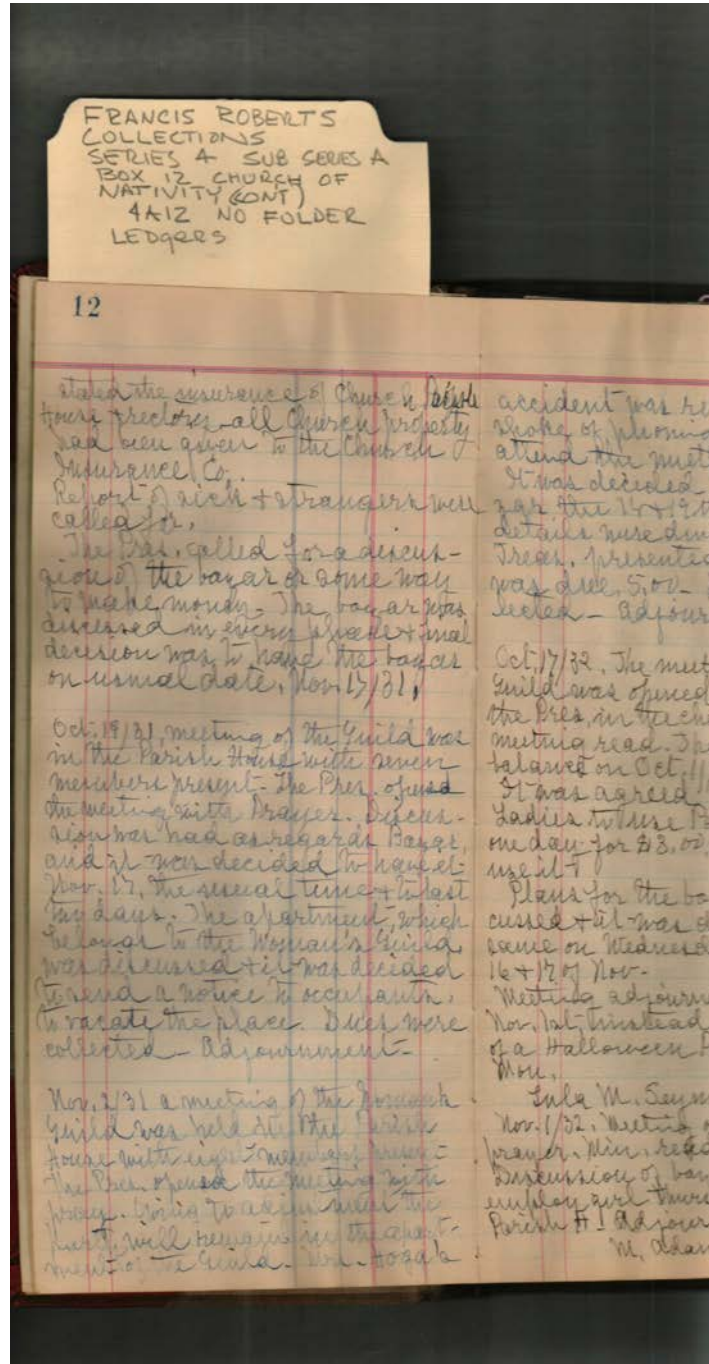 FRANCIS ROBERTS
COLLECTIONS
SERIES 4 SUB SERIES A
BOX 12 CHURCH OF
NATIVITY (CONT)
4A12 NO FOLDER
LEDgERS
12
stated the insurance of Church Parish
House + rectory - all Church property
had been given to the Church
Insurance Co.
Report of sick + strangers were
called for.
The Pres. called for a discus-
sion of the bazar or some way
to make money. The bazar was
discussed in every phase + final
decision was to have the bazar
on usual date, Nov. 17/31.
Oct. 19/31, meeting of the Guild was
in the Parish House with seven
members present - The Pres. opened
the meeting with Prayer. Discus-
sion was had as regards Bazar,
and it was decided to have it
Nov. 17, the usual time + to last
two days. The apartment, which
belongs to the Woman's Guild,
was discussed + it was decided
to send a notice to occupants,
to vacate the place. Dues were
collected - Adjournment -
Nov. 2/31 a meeting of the Womans
Guild was held in the Parish
House with eight members present -
The Pres. opened the meeting with
pray. Owing to the
party will remain in the apart-
ment of the Guild. Mrs.
accident was re
spoke of phoning
attend the meet
It was decided
the
details were
Treas. presented
was due, 5.00 -
lected - Adjour
Oct. 17/32, The meet
Guild was opened
the Pres, in the
meeting read. 
balance on Oct. 11
It was agreed
Ladies to use P
one day for $3.00,
use it
Plans for the ba
cussed + it was d
same on Wednesd
16 + 17 of Nov -
Meeting adjourn
Nov. 1st, instead
of a Halloween
Mon.
Lula M. Seym
Nov. 1/32, Meeting
prayer. Min. read
Discussion of baz
employ girl Thurs
Parish H. Adjour
M. Adam